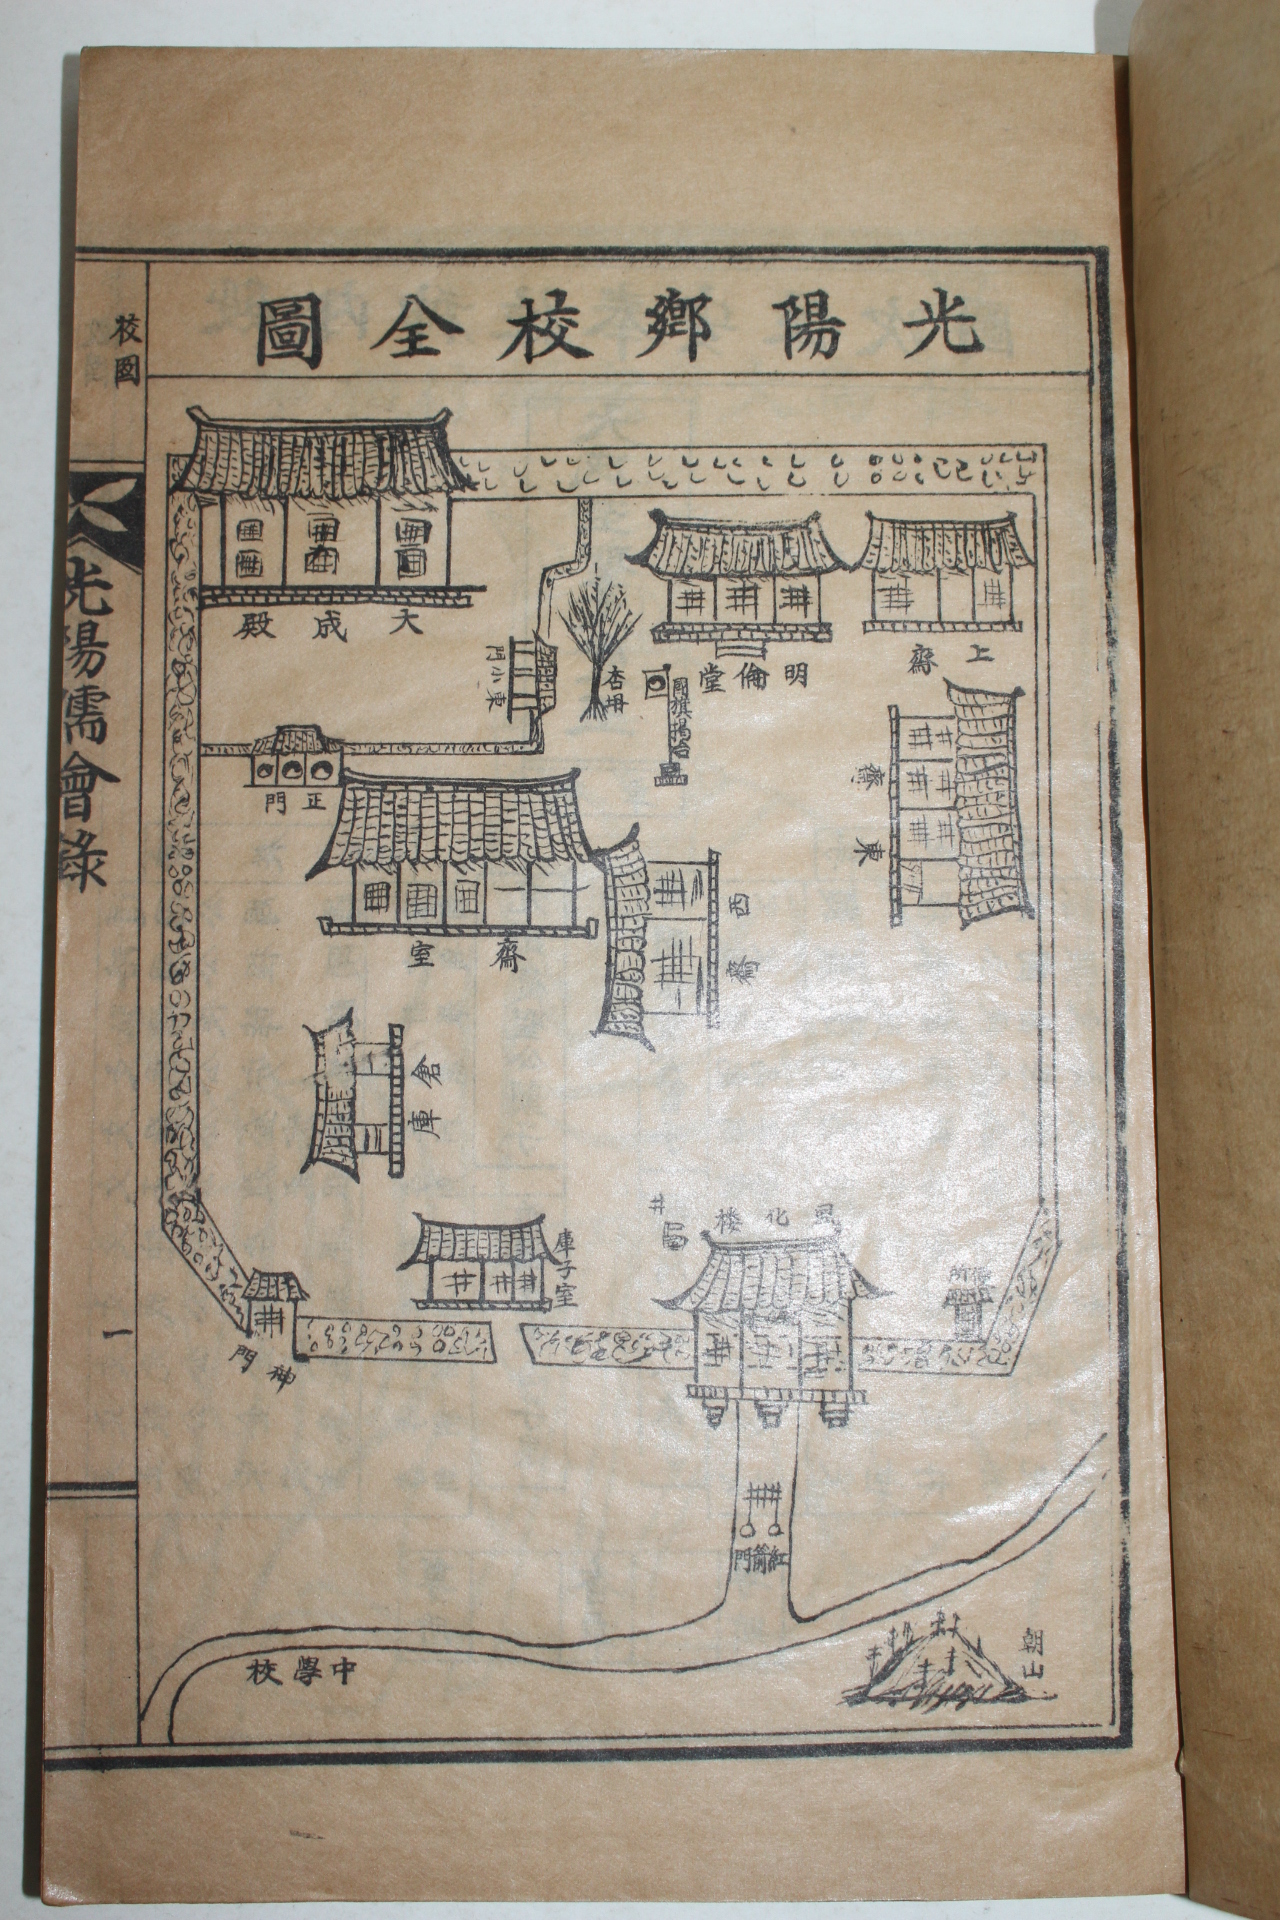 光陽鄕校全圖
校圖
光陽儒會錄
一
大成殿
明倫堂
上齋
東小門
杏坍
國旗揭
正門
東齋
齋室
西齋
倉庫
井
風化楼
庫子室
所
神門
紅箭門
中學校
朝山